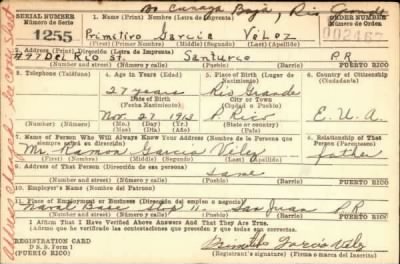 Bo Guzman Baja, Rio Grande
SERIAL NUMBER
Número de Serie
1. Name (Print) (Nombre de Imprenta)
ORDER NUMBER
Número de Orden
1255
Primitivo García Vélez
002462
(First) (Primer Nombre) (Middle) (Segundo) (Last) (Apellido)
2. Address (Print) (Dirección) (Letra de Imprenta)
#97 Del Río St. Santurce P.R
Number and street (Número y calle) (Town) (Pueblo) PUERTO RICO
3. Telephone (Teléfono)
4. Age in Years (Edad)
5. Place of Birth (Lugar de Nacimiento)
6. Country of Citizenship (Ciudadanía)
27 years
Rio Grande
Date of Birth
(Fecha de Nacimiento)
City or Town
(Ciudad o Pueblo)
Nov. 27 1913
P. Rico
E. U. A.
(Mo.) (Day) (Yr.)
(Mes) (Día) (Año)
(State or country)
(Estado o país)
7. Name of Person Who Will Always Know Your Address (Nombre de la Persona que siempre sabrá su dirección)
8. Relationship of That Person (Parentesco)
Mr. Ramon Garcia Velez
father
(First) (Nombre) (Middle) (Segundo) (Last) (Apellido)
9. Address of That Person (Dirección de esa persona)
same
Number and street (Número y calle) (Town) (Pueblo) PUERTO RICO
10. Employer's Name (Nombre del Patrono)
11. Place of Employment or Business (Dirección del empleo o negocio)
Naval Base Stop 11 San Juan P.R
Number and street (Número y calle) (Town) (Pueblo) PUERTO RICO
I Affirm That I Have Verified Above Answers and That They Are True.
Afirmo que he verificado las contestaciones que preceden y que todas son ciertas.
REGISTRATION CARD
D. S. S. Form 1
(Puerto Rico)
Primitivo Garcia Velez
Registrant's signature (firma o marca del Registrado)